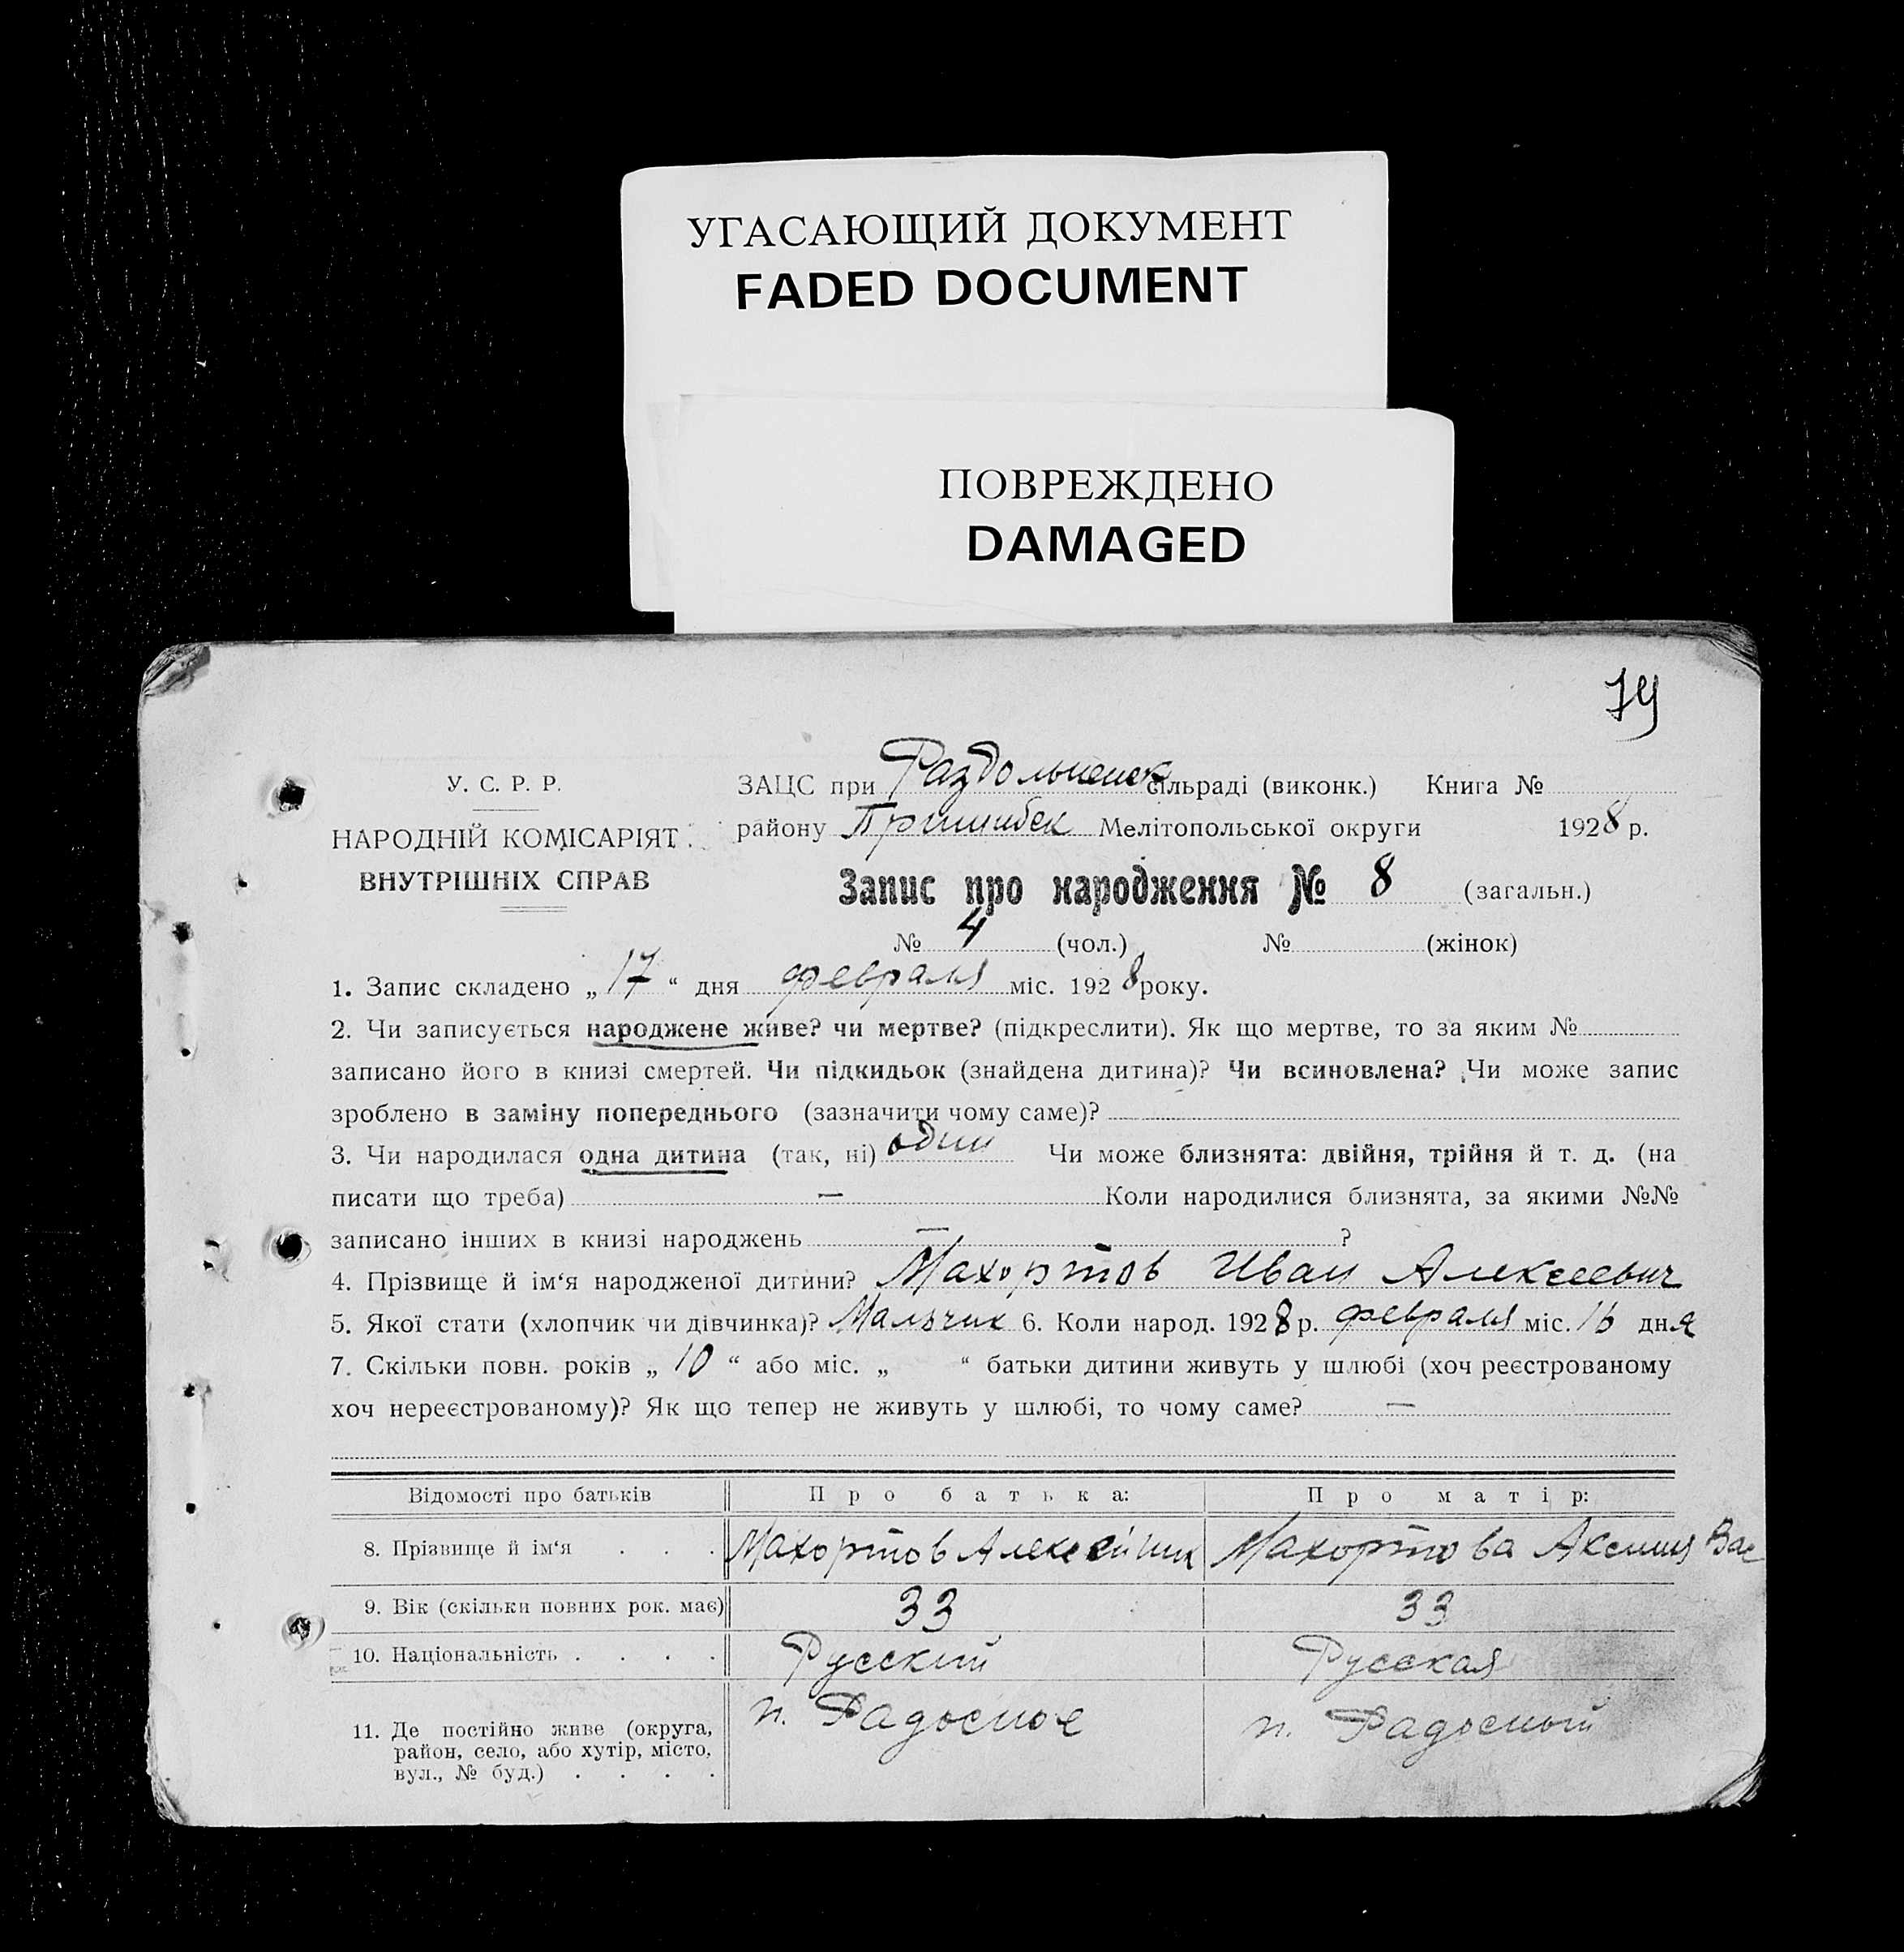 УГАСАЮЩИЙ ДОКУМЕНТ
FADED DOCUMENT
ПОВРЕЖДЕНО
DAMAGED
79
У. С. Р. Р.
НАРОДНІЙ КОМІСАРІЯТ
ВНУТРІШНІХ СПРАВ
ЗАЦС при Раздольненск сільраді (виконк.) Книга №
району Пришибск Мелітопольської округи 1928 р.
Запис про народження № 8 (загальн.)
№ 4 (чол.) № (жінок)
1. Запис складено „ 17 “ дня февраля міс. 1928 року.
2. Чи записується народжене живе? чи мертве? (підкреслити). Як що мертве, то за яким №
записано його в книзі смертей. Чи підкидьок (знайдена дитина)? Чи всиновлена? Чи може запис
зроблено в заміну попереднього (зазначити чому саме)?
3. Чи народилася одна дитина (так, ні) один Чи може близнята: двійня, трійня й т. д. (на
писати що треба) — Коли народилися близнята, за якими №№
записано інших в книзі народжень — ?
4. Прізвище й ім‘я народженої дитини? Махортов Иван Алексеевич
5. Якої стати (хлопчик чи дівчинка)? Мальчик 6. Коли народ. 1928 р. февраля міс. 16 дня
7. Скільки повн. років „ 10 “ або міс. „ “ батьки дитини живуть у шлюбі (хоч реєстрованому
хоч нереєстрованому)? Як що тепер не живуть у шлюбі, то чому саме? —
Відомості про батьків Про батька: Про матір:
8. Прізвище й ім‘я . . . Махортов Алексей Махортова Аксиния Вас
9. Вік (скільки повних рок. має) 33 33
10. Національність . . . . Русский Русская
11. Де постійно живе (округа, район, село, або хутір, місто, вул., № буд.) . . . . п. Радосное п. Радосный